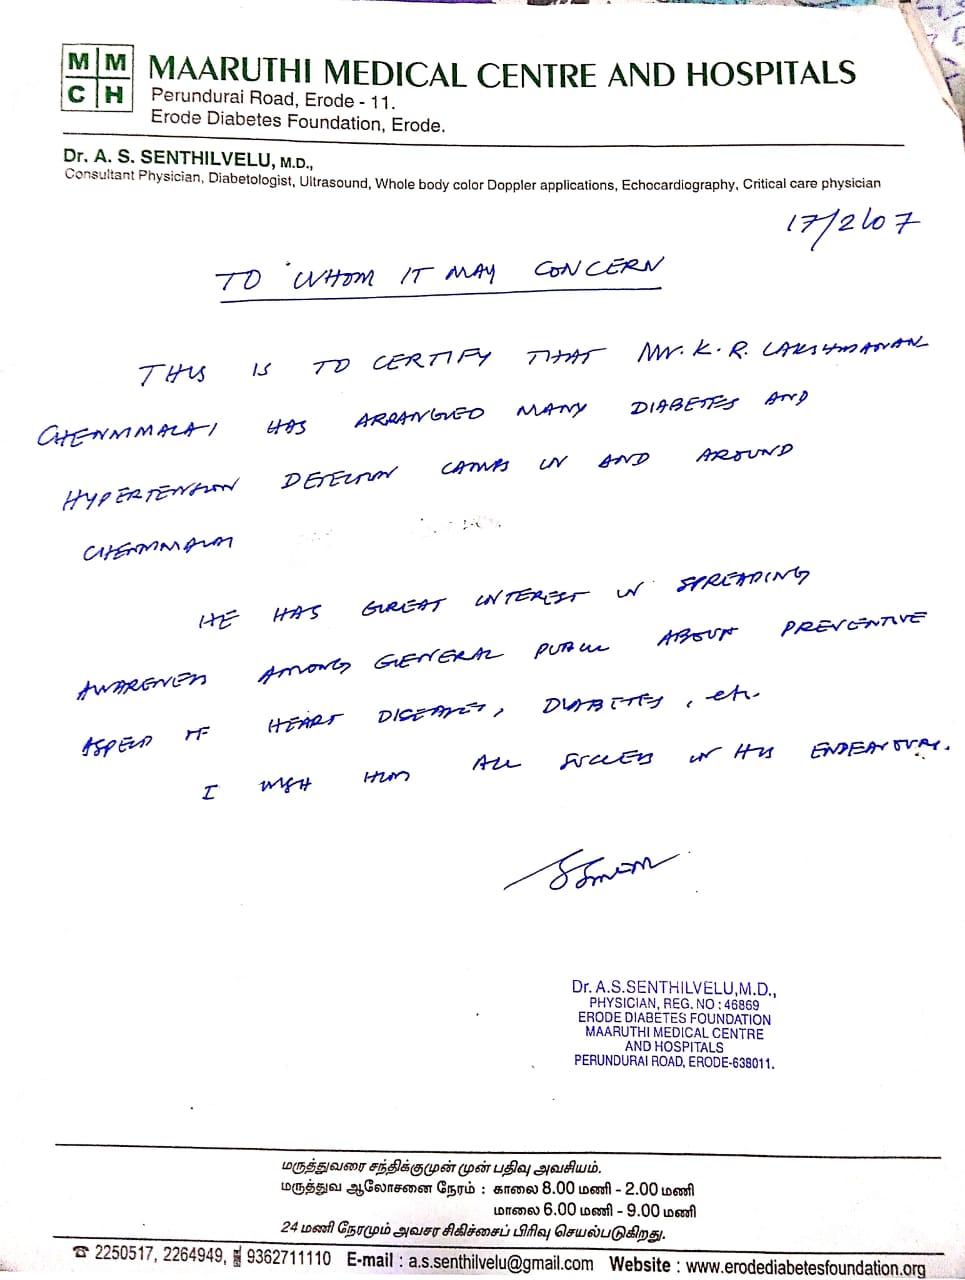 M M
C H
MAARUTHI MEDICAL CENTRE AND HOSPITALS
Perundurai Road, Erode - 11.
Erode Diabetes Foundation, Erode.
Dr. A. S. SENTHILVELU, M.D.,
Consultant Physician, Diabetologist, Ultrasound, Whole body color Doppler applications, Echocardiography, Critical care physician
17/2/07
TO WHOM IT MAY CONCERN
THIS IS TO CERTIFY THAT Mr. K. R. LAKSHMANAN
CHENNIMALAI HAS ARRANGED MANY DIABETES AND
HYPERTENSION DETECTION CAMPS IN AND AROUND
CHENNIMALAI
HE HAS GREAT INTEREST IN SPREADING
AWARENESS AMONG GENERAL PUBLIC ABOUT PREVENTIVE
ASPECTS OF HEART DISEASES, DIABETES, etc.
I WISH HIM ALL SUCCESS IN HIS ENDEAVOURS.
Dr. A.S.SENTHILVELU,M.D.,
PHYSICIAN, REG. NO : 46869
ERODE DIABETES FOUNDATION
MAARUTHI MEDICAL CENTRE
AND HOSPITALS
PERUNDURAI ROAD, ERODE-638011.
மருத்துவரை சந்திக்குமுன் முன் பதிவு அவசியம்.
மருத்துவ ஆலோசனை நேரம் : காலை 8.00 மணி - 2.00 மணி
மாலை 6.00 மணி - 9.00 மணி
24 மணி நேரமும் அவசர சிகிச்சைப் பிரிவு செயல்படுகிறது.
☎ 2250517, 2264949, 9362711110 E-mail : a.s.senthilvelu@gmail.com Website : www.erodediabetesfoundation.org